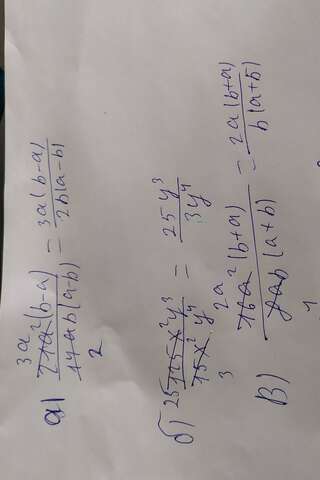 а) 3a 21a²(b-a) / 14ab(a-b) 2 = 3a(b-a) / 2b(a-b)
б) 25 125x²y³ / 15x²y⁴ 3 = 25y³ / 3y⁴
в) 2a 16a²(b+a) / 8ab(a+b) 1 = 2a(b+a) / b(a+b)